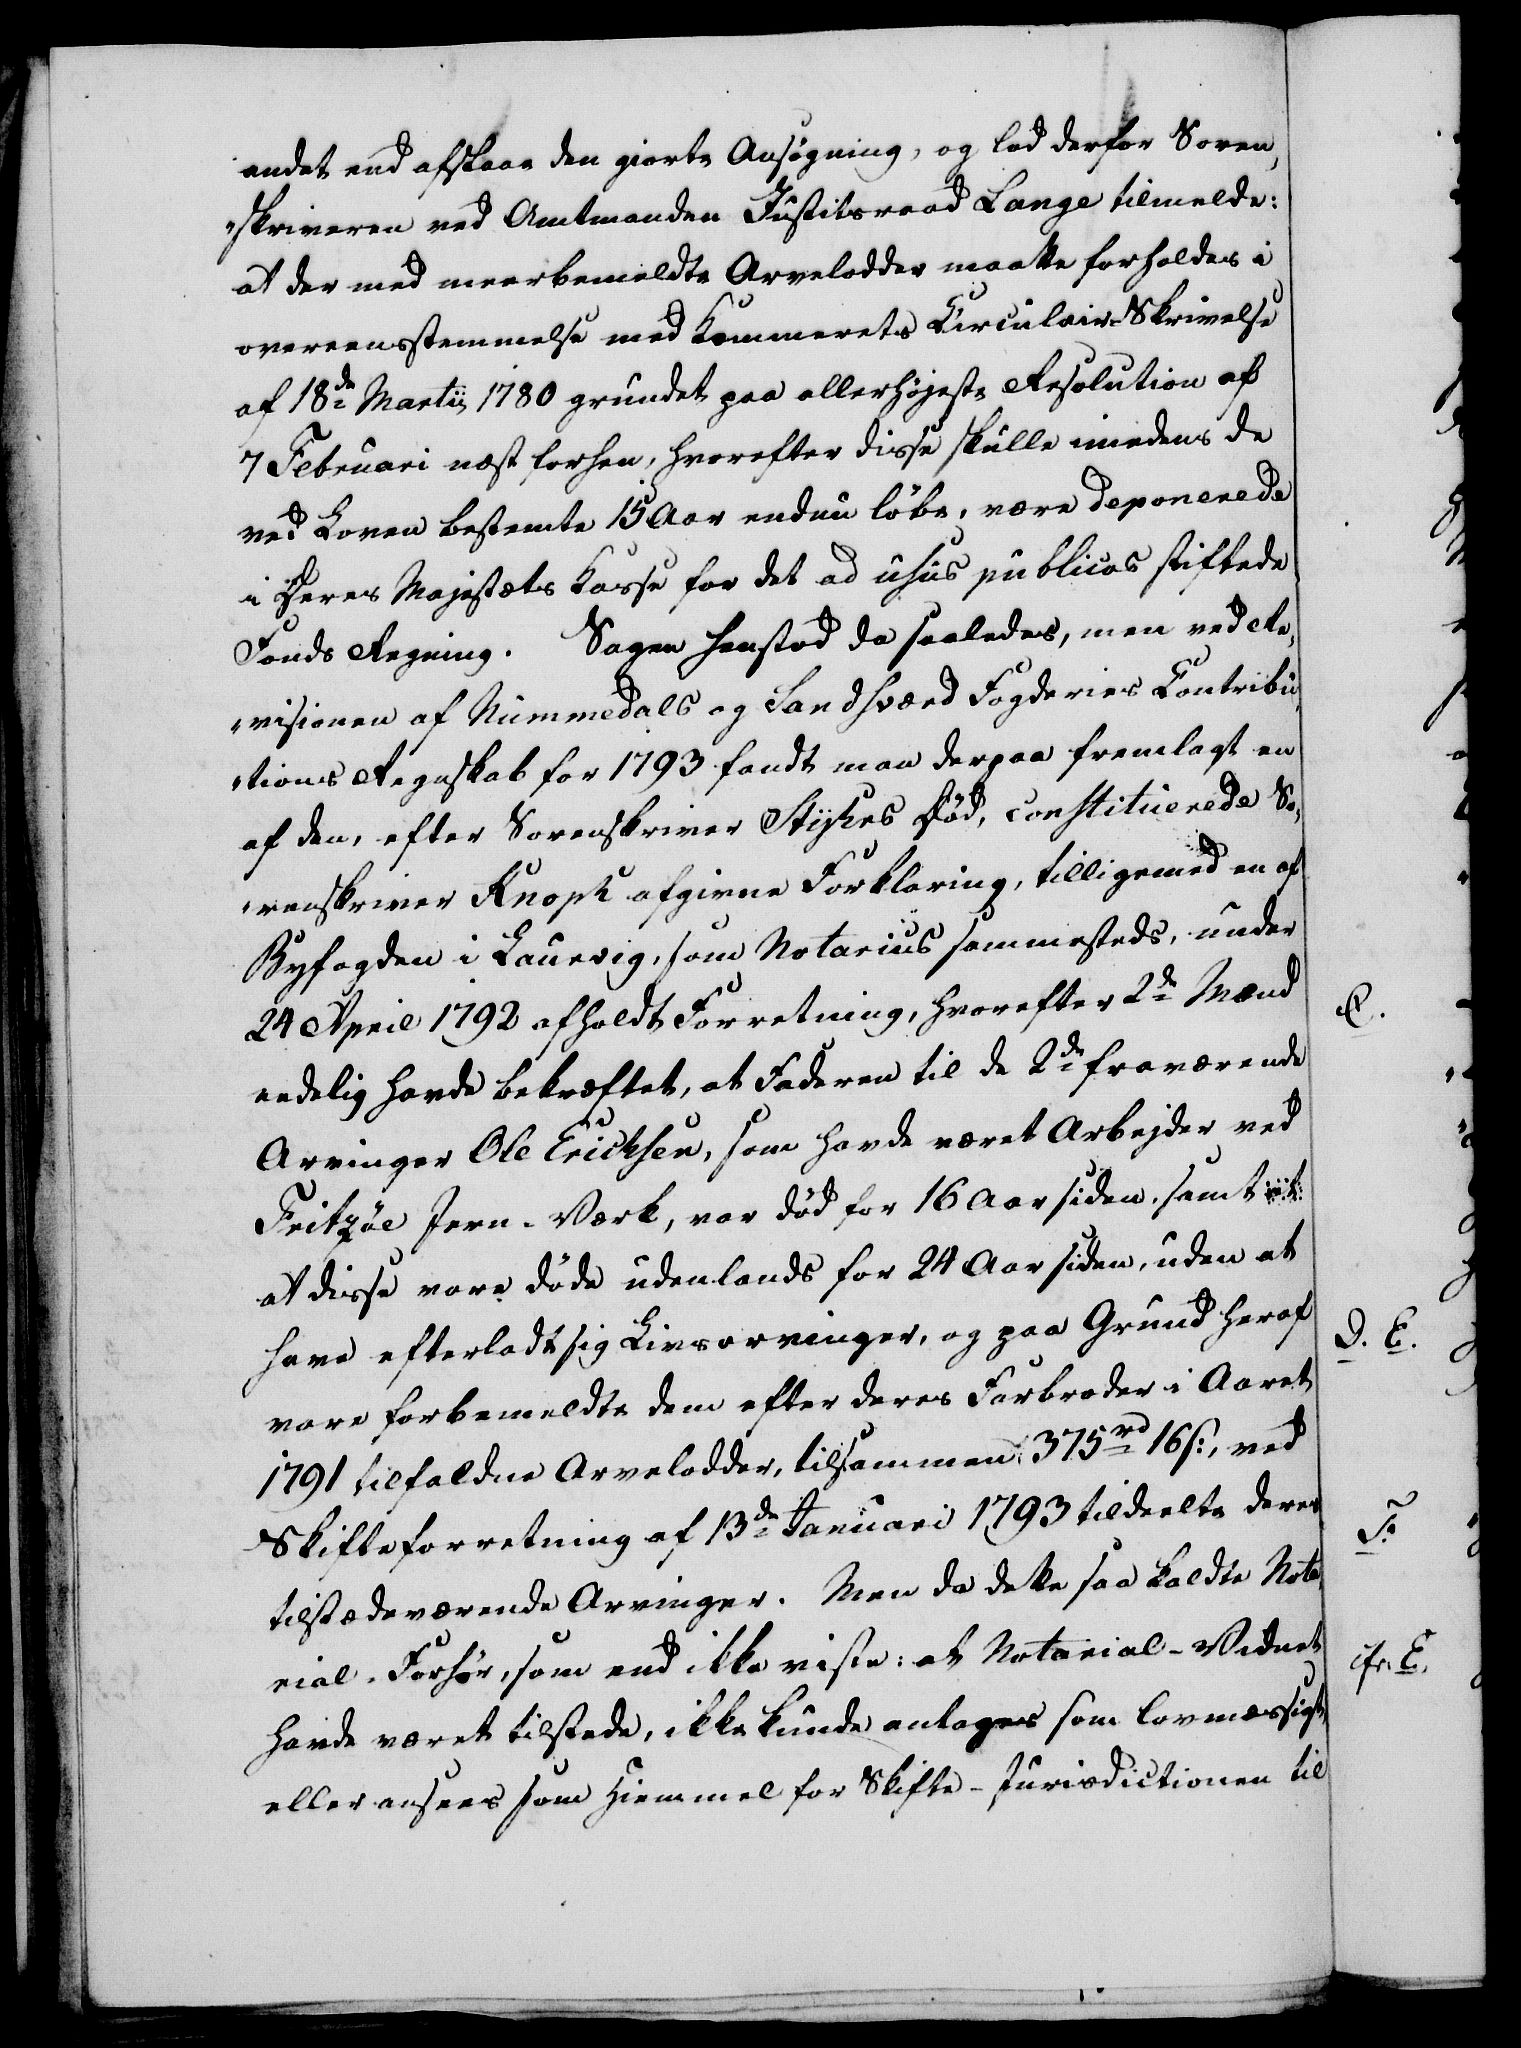 andet end afslaae den giorte Ansøgning, og lod derfor Soren,
"skriveren ved Amtmanden Justitsraad Lange tilmelde:
at der med meerbemeldte Arvelodder maatte forholdes i
overeensstemmelse med Kammerets Circulair-Skrivelse
af 18de Martii 1780 grundet paa allerhøjeste Resolution af
7 Februari næst forhen, hvorefter disse skulle imedens de
ved Loven bestemte 15 Aar endnu løbe, være deponerede
i Deres Majestæts Kasse for det ad usus publicos stiftede
Fonds Regning. Sagen henstod da saaledes, men ved Re,
"visionen af Nummedals og Sandsværd Fogderies Contribu,
"tions Regnskab for 1793 fandt man derpaa fremlagt en
af den, efter Sorenskriver Stykes Død, constituerede So,
"renskriver Knoph afgivne Forklaring, tilligemed en af
Byfogden i Laurvig, som Notarius sammesteds, under
24 April 1792 afholdt Forretning, hvorefter 2de Mænd
C.
eedelig havde bekræftet, at Faderen til de 2de fraværende
Arvinger Ole Erichsen, som havde været Arbejder ved
Fritzøe Jern-Værk, var død for 16 Aar siden, samt
at disse vare døde udenlands for 24 Aar siden, uden at
have efterladt sig Livsarvinger, og paa Grund heraf
D. E.
vare forbemeldte dem efter deres Farbroder i Aaret
1791 tilfaldne Arvelodder, tilsammen 375 rd 16 s:, ved
Skifteforretning af 13de Januari 1793 tildeelte deres
F.
tilstædeværende Arvinger. Men da dette saa kaldte Nota,
rial-Forhør, som end ikke viste: at Notarial-Vidnet
cfr. E.
havde været tilstede, ikke kunde antages som lovmæssigt,
eller ansees som Hiemmel for Skifte-Jurisdictionen til